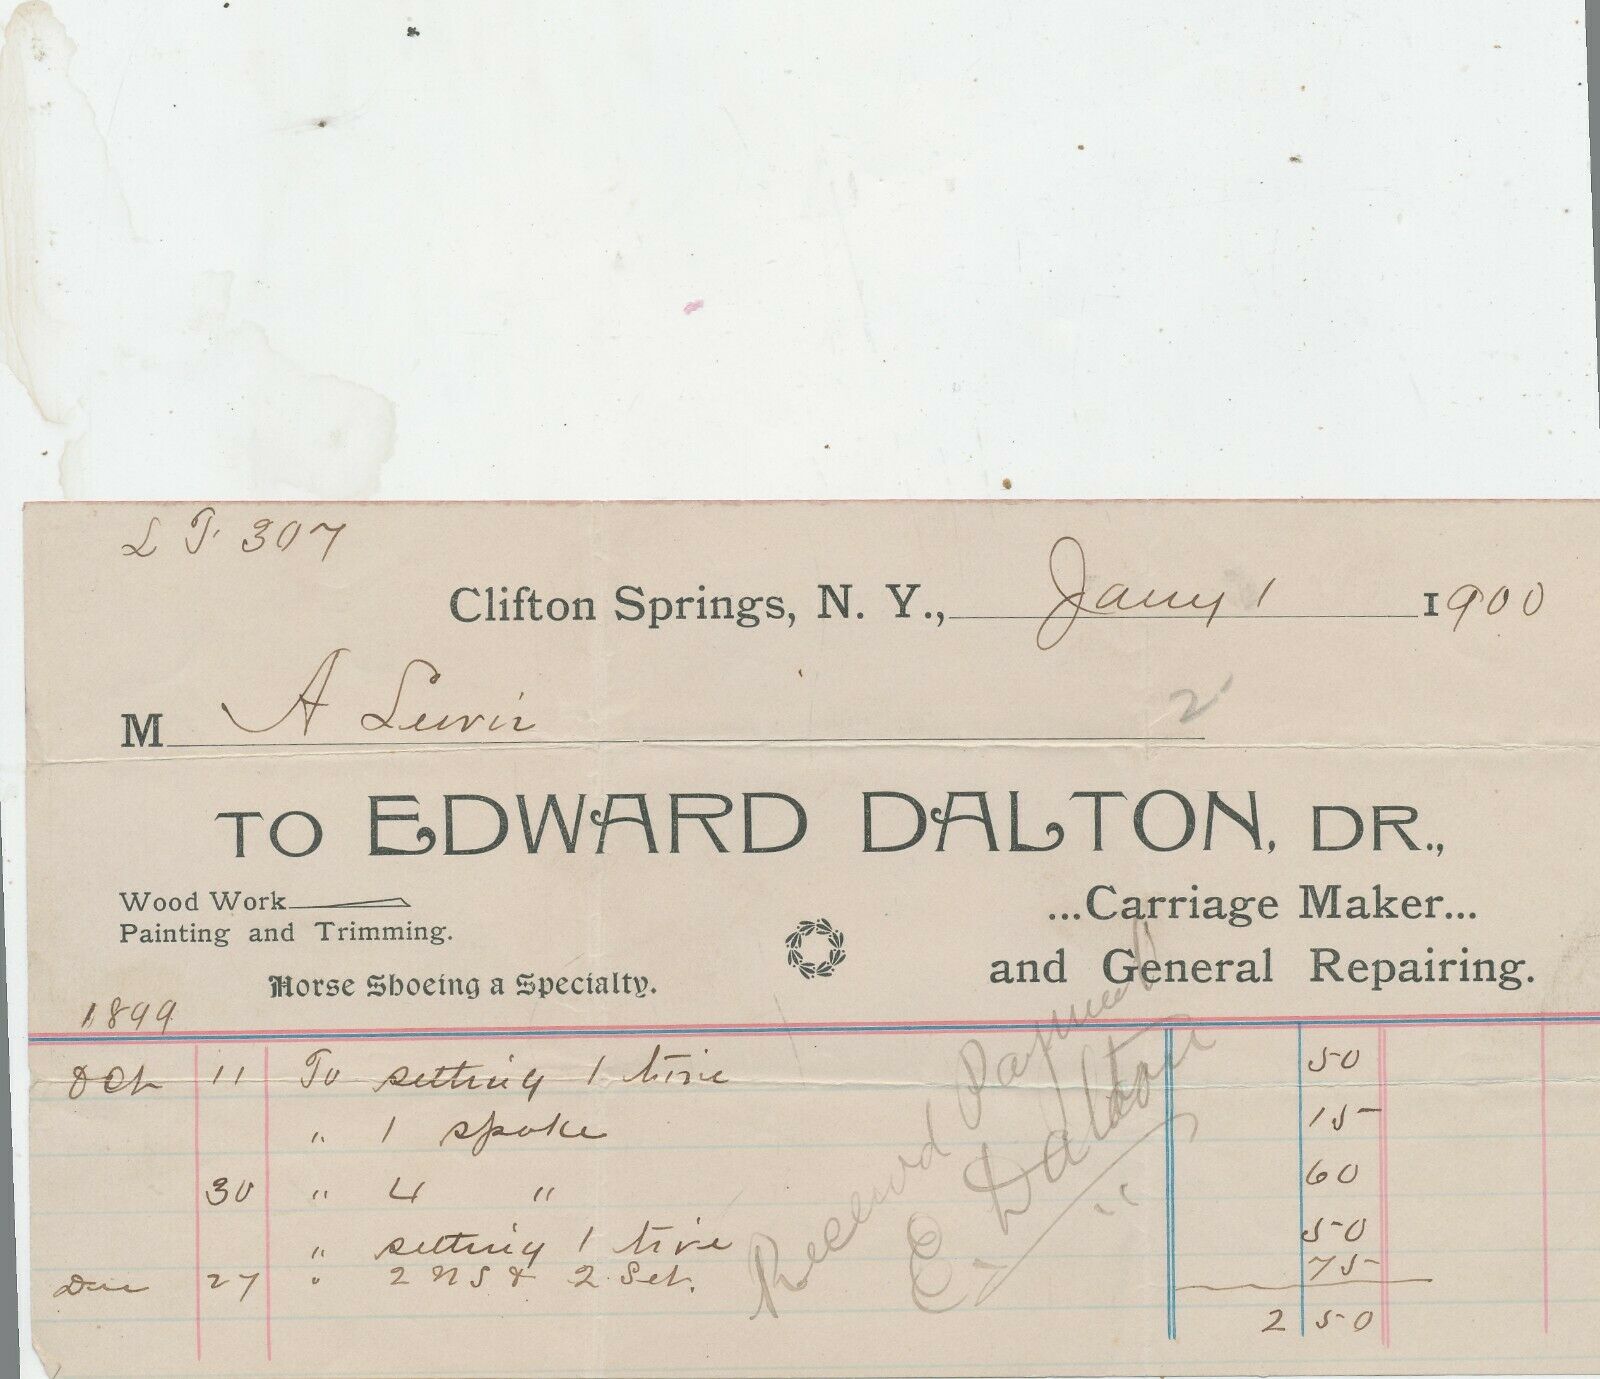 L F. 307
Clifton Springs, N. Y., Jany 1 1900
M A Lewis
2
TO EDWARD DALTON, DR.,
Wood Work
Painting and Trimming.
...Carriage Maker...
and General Repairing.
Horse Shoeing a Specialty.
1899
Oct 11 To setting 1 tire 50
" 1 spoke 15
30 " 4 " 60
" setting 1 tire 50
Dec 27 " 2 N S & 2 Set. 75
2 50
Received Payment
E Dalton